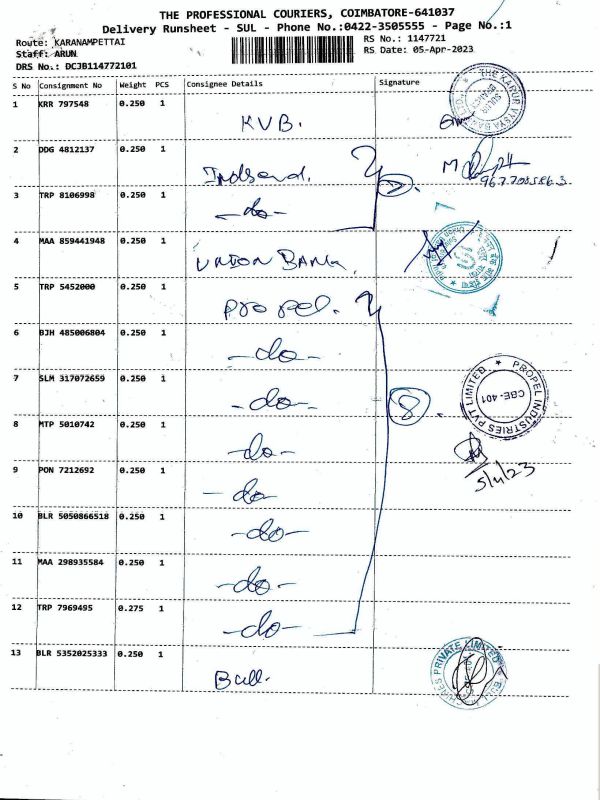 THE PROFESSIONAL COURIERS, COIMBATORE-641037
Delivery Runsheet - SUL - Phone No.:0422-3505555 - Page No.:1
Route: KARANAMPETTAI RS No.: 1147721
Staff: ARUN RS Date: 05-Apr-2023
DRS No.: DCJB114772101
S No Consignment No Weight PCS Consignee Details Signature
1 KRR 797548 0.250 1 KVB.
THE KARUR VYSYA BANK SULUR BRANCH
2 DDG 4812137 0.250 1
3 TRP 8106998 0.250 1 -do-
4 MAA 859441948 0.250 1 UNION BANK
5 TRP 5452000 0.250 1 Propel.
6 BJH 485006804 0.250 1 -do-
7 SLM 317072659 0.250 1 -do- 8.
PROPEL INDUSTRIES PVT LIMITED CBE-401
8 MTP 5010742 0.250 1 -do-
5/4/23
9 PON 7212692 0.250 1 -do-
10 BLR 5050866518 0.250 1 -do-
11 MAA 298935584 0.250 1 -do-
12 TRP 7969495 0.275 1 -do-
13 BLR 5352025333 0.250 1 Bull.
PRIVATE LIMITED